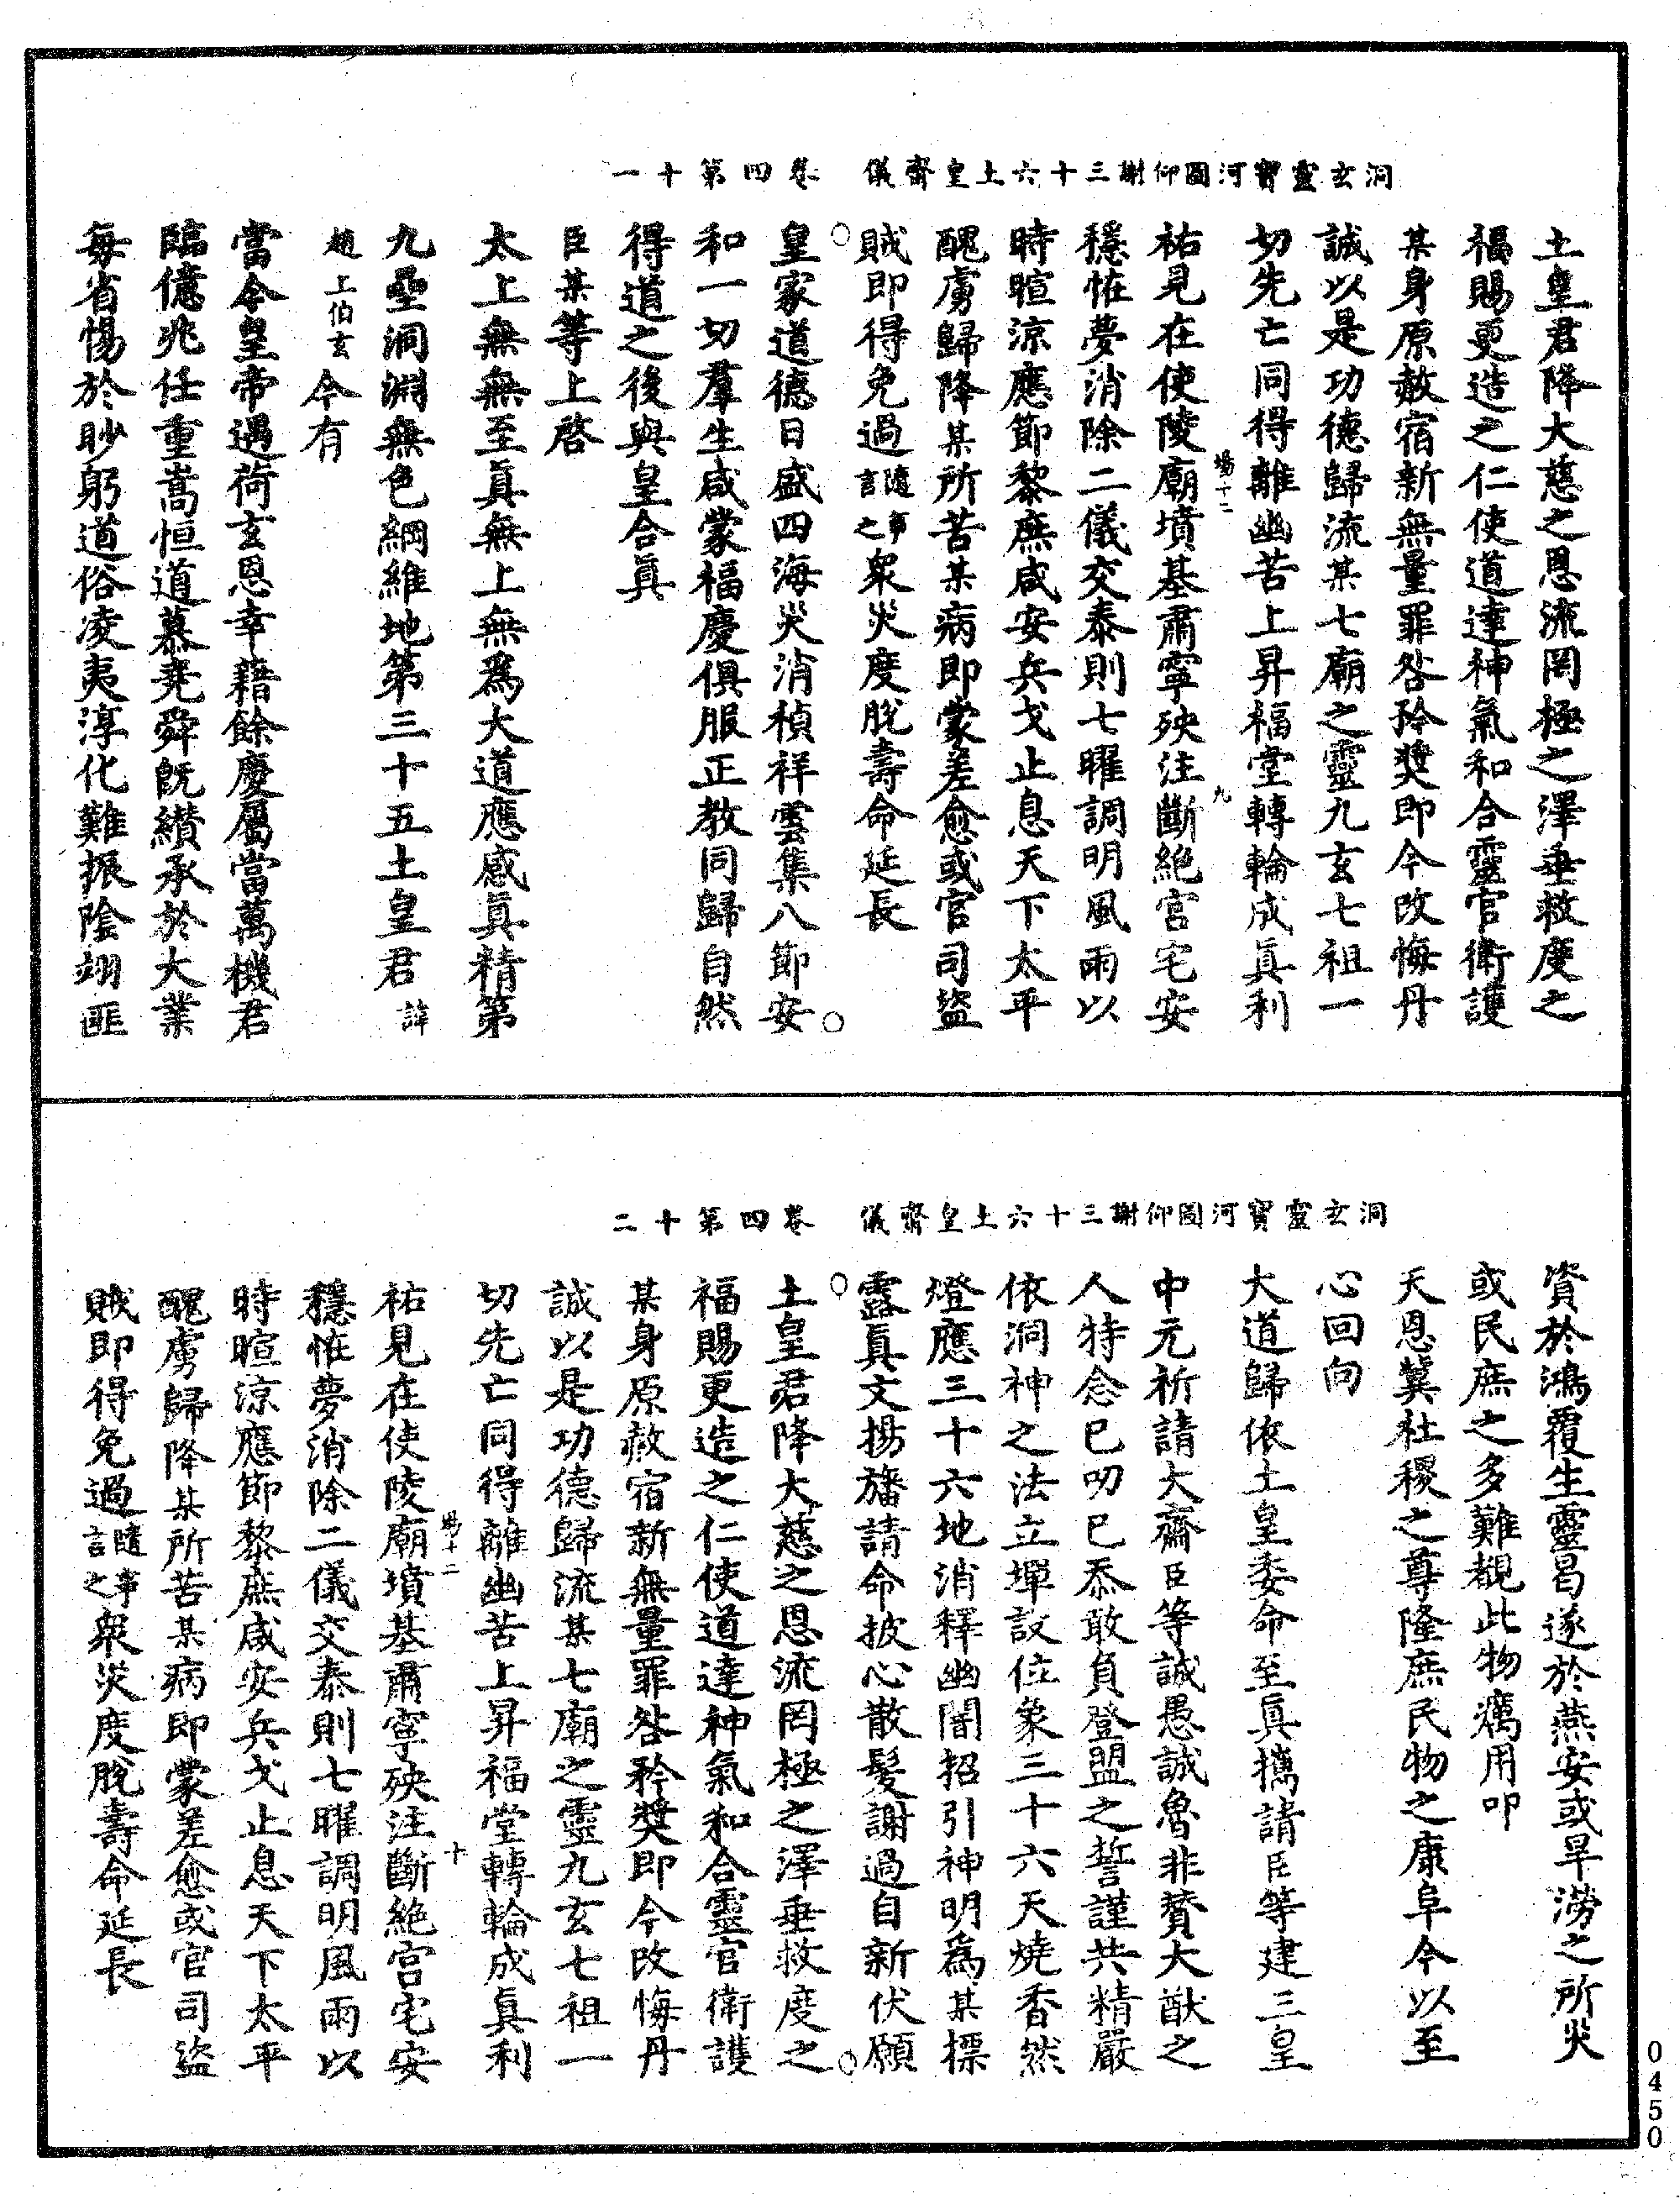 洞玄靈寶河圖仰謝三十六土皇齋儀　卷四第十一
土皇君降大慈之恩流罔極之澤垂救度之
福賜更造之仁使道達神氣和合靈官衛護
某身原赦宿新無量罪咎矜獎即今改悔丹
誠以是功德歸流某七廟之靈九玄七祖一
切先亡同得離幽苦上昇福堂轉輪成真利
場十二　九
祐見在使陵廟墳基肅寧殃注斷絕宮宅安
穩恠夢消除二儀交泰則七曜調明風雨以
時暄涼應節黎庶咸安兵戈止息天下太平
醜虜歸降某所苦某病即蒙差愈或官司盜
賊即得免過隨事言之衆災度脫壽命延長
皇家道德日盛四海災消禎祥雲集八節安
和一切羣生咸蒙福慶俱服正教同歸自然
得道之後與皇合真
臣某等上啓
太上無無至真無上無為大道應感真精第
九壘洞淵無色綱維地第三十五土皇君諱
趙上伯玄今有
當今皇帝遇荷玄恩幸藉餘慶屬當萬機君
臨億兆任重嵩恒道慕堯舜既纘承於大業
每省惕於眇躬道俗凌夷淳化難振陰翊匪
洞玄靈寶河圖仰謝三十六土皇齋儀　卷四第十二
資於鴻覆生靈曷遂於燕安或旱澇之所災
或民庶之多難覩此物癘用叩
天恩冀社稷之尊隆庶民物之康阜今以至
心回向
大道歸依土皇委命至真攜請臣等建三皇
中元祈請大齋臣等誠愚誠魯非贊大猷之
人特念已叨已忝敢負登盟之誓謹共精嚴
依洞神之法立墠設位象三十六天燒香然
燈應三十六地消釋幽闇招引神明為某標
露真文揚旛請命披心散髮謝過自新伏願
土皇君降大慈之恩流罔極之澤垂救度之
福賜更造之仁使道達神氣和合靈官衛護
某身原赦宿新無量罪咎矜獎即今改悔丹
誠以是功德歸流某七廟之靈九玄七祖一
切先亡同得離幽苦上昇福堂轉輪成真利
場十二　十
祐見在使陵廟墳基肅寧殃注斷絕宮宅安
穩恠夢消除二儀交泰則七曜調明風雨以
時暄涼應節黎庶咸安兵戈止息天下太平
醜虜歸降某所苦某病即蒙差愈或官司盜
賊即得免過隨事言之衆災度脫壽命延長
0450